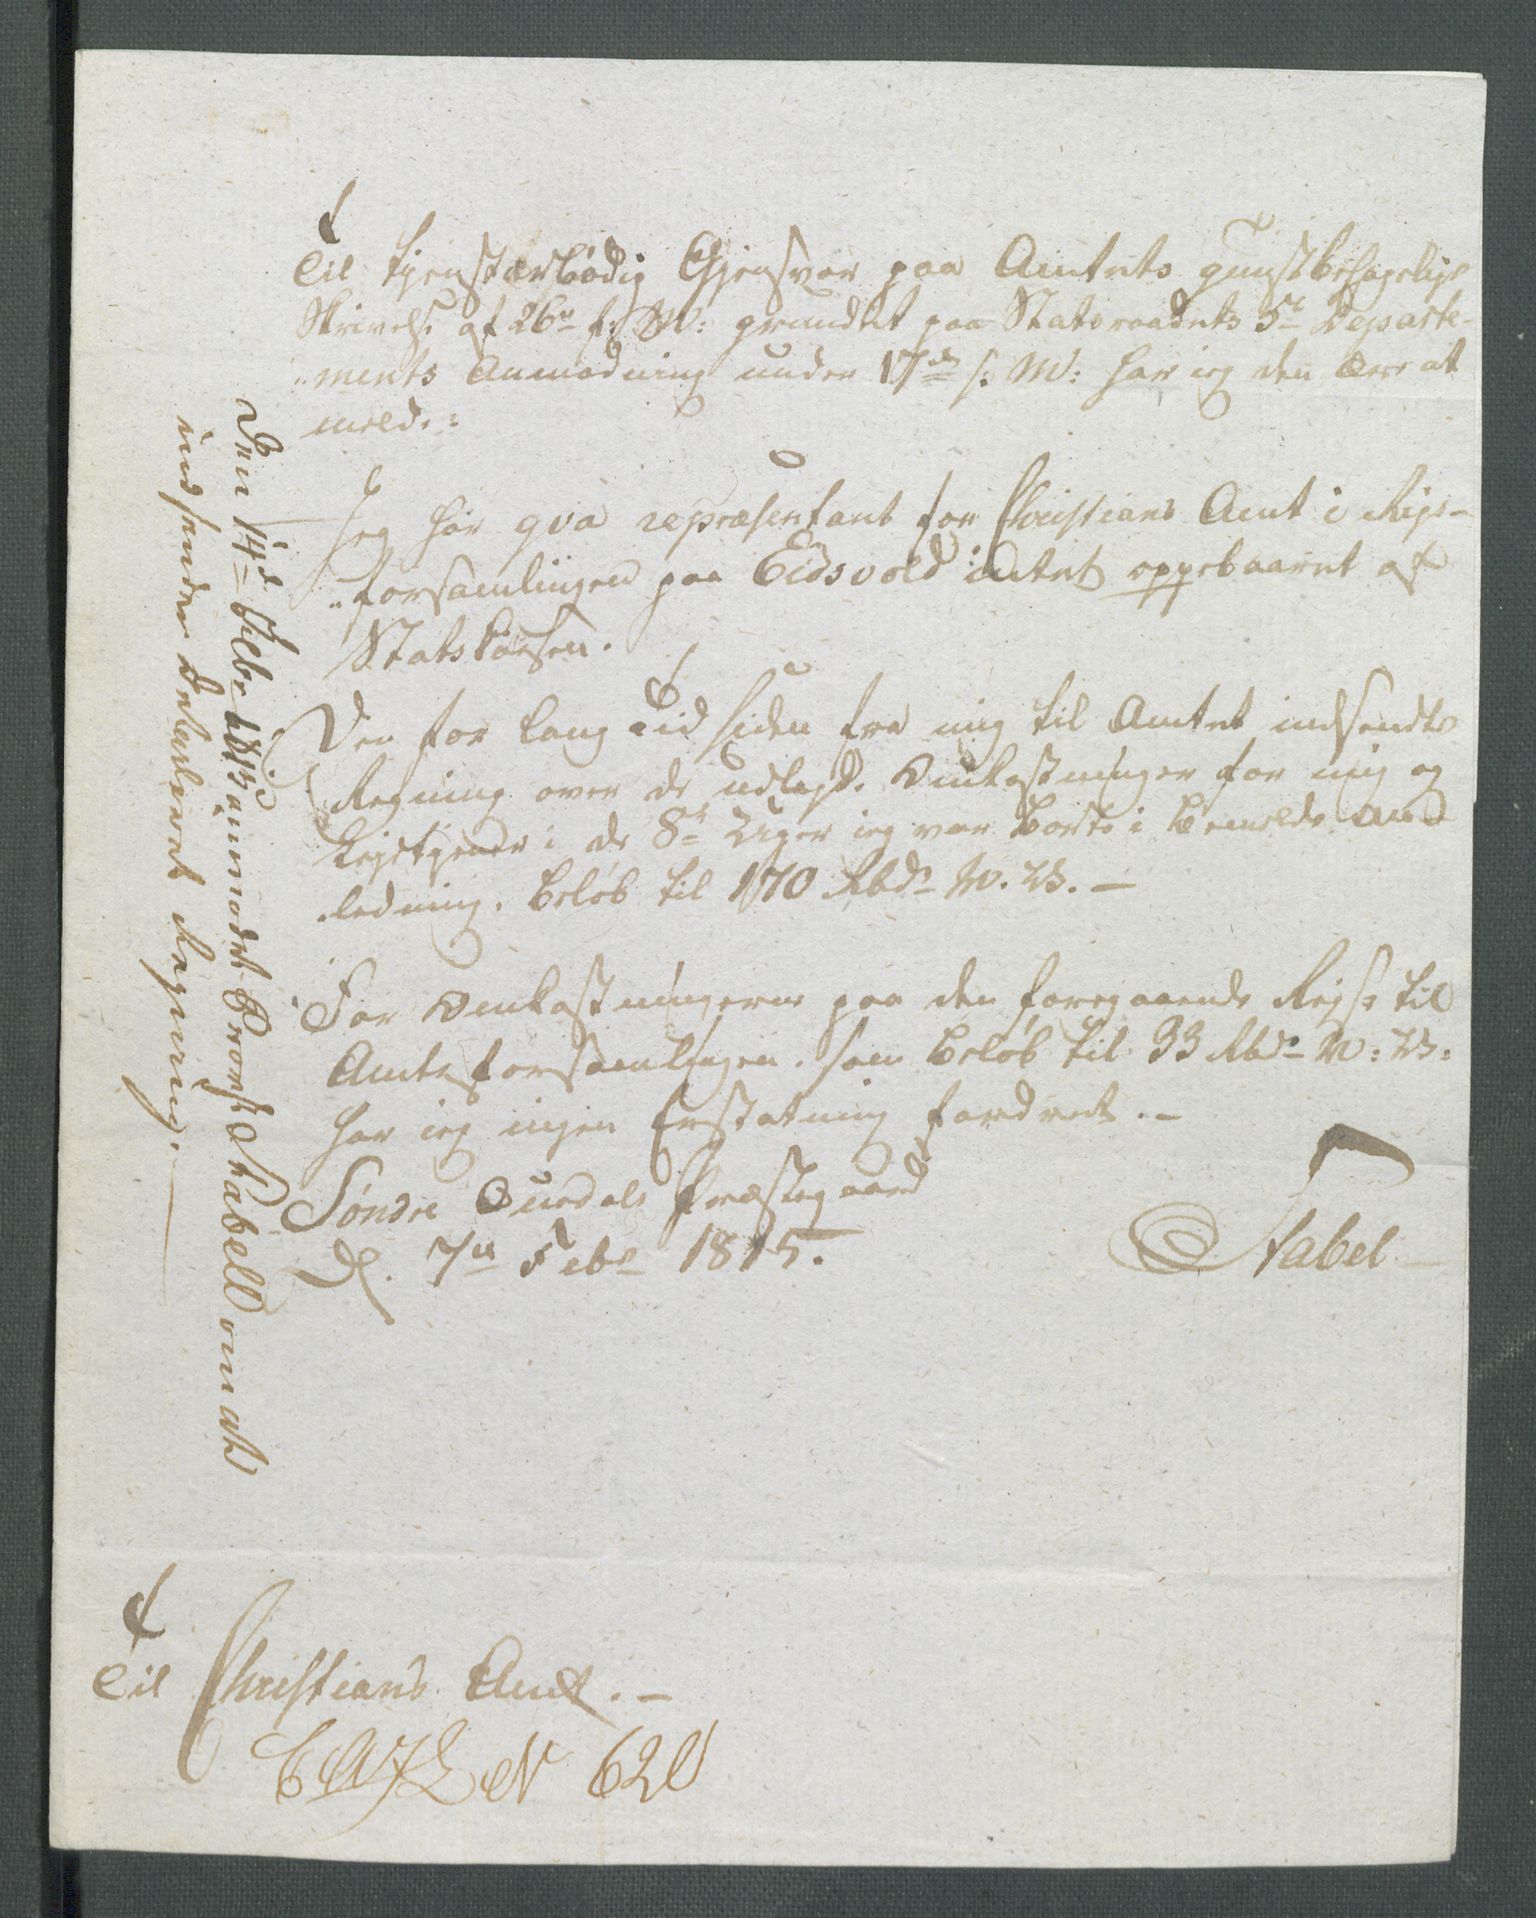 Til tjenstærbödig Gjensvar paa Amtets gunstbehagelige
Skrivelse af 26de f: M: grundet paa Statsraadets 5te Departe-
„ments Anmodning under 17de s. M: har ieg den Ære at
melde:
Jeg har qva repræsentant for Christians Amt i Rigs-
„forsamlingen paa Eidsvold intet oppebaaret af
Statskassen.
Den for lang Tid siden fra mig til Amtet indsendte
Regning over de udlagde Omkostninger for mig og
Lejetjener i de 8te Uger ieg var borte i bemeldte And
ledning, belöb til 170 Rbdr N. V. —
For Omkostningerne paa den foregaaende Rejse til
Amtsforsamlingen, som belöb til 33 Rbdr N: V:
har ieg ingen Erstatning fordret. —
Söndre Aurdals Præstegaard
d. 7de Febr 1815.
Stabel
Den 14de Febr 1815 anmodet Provst Stabell om at
indsende detailleret Regning.
Til Christians Amt. —
N 620